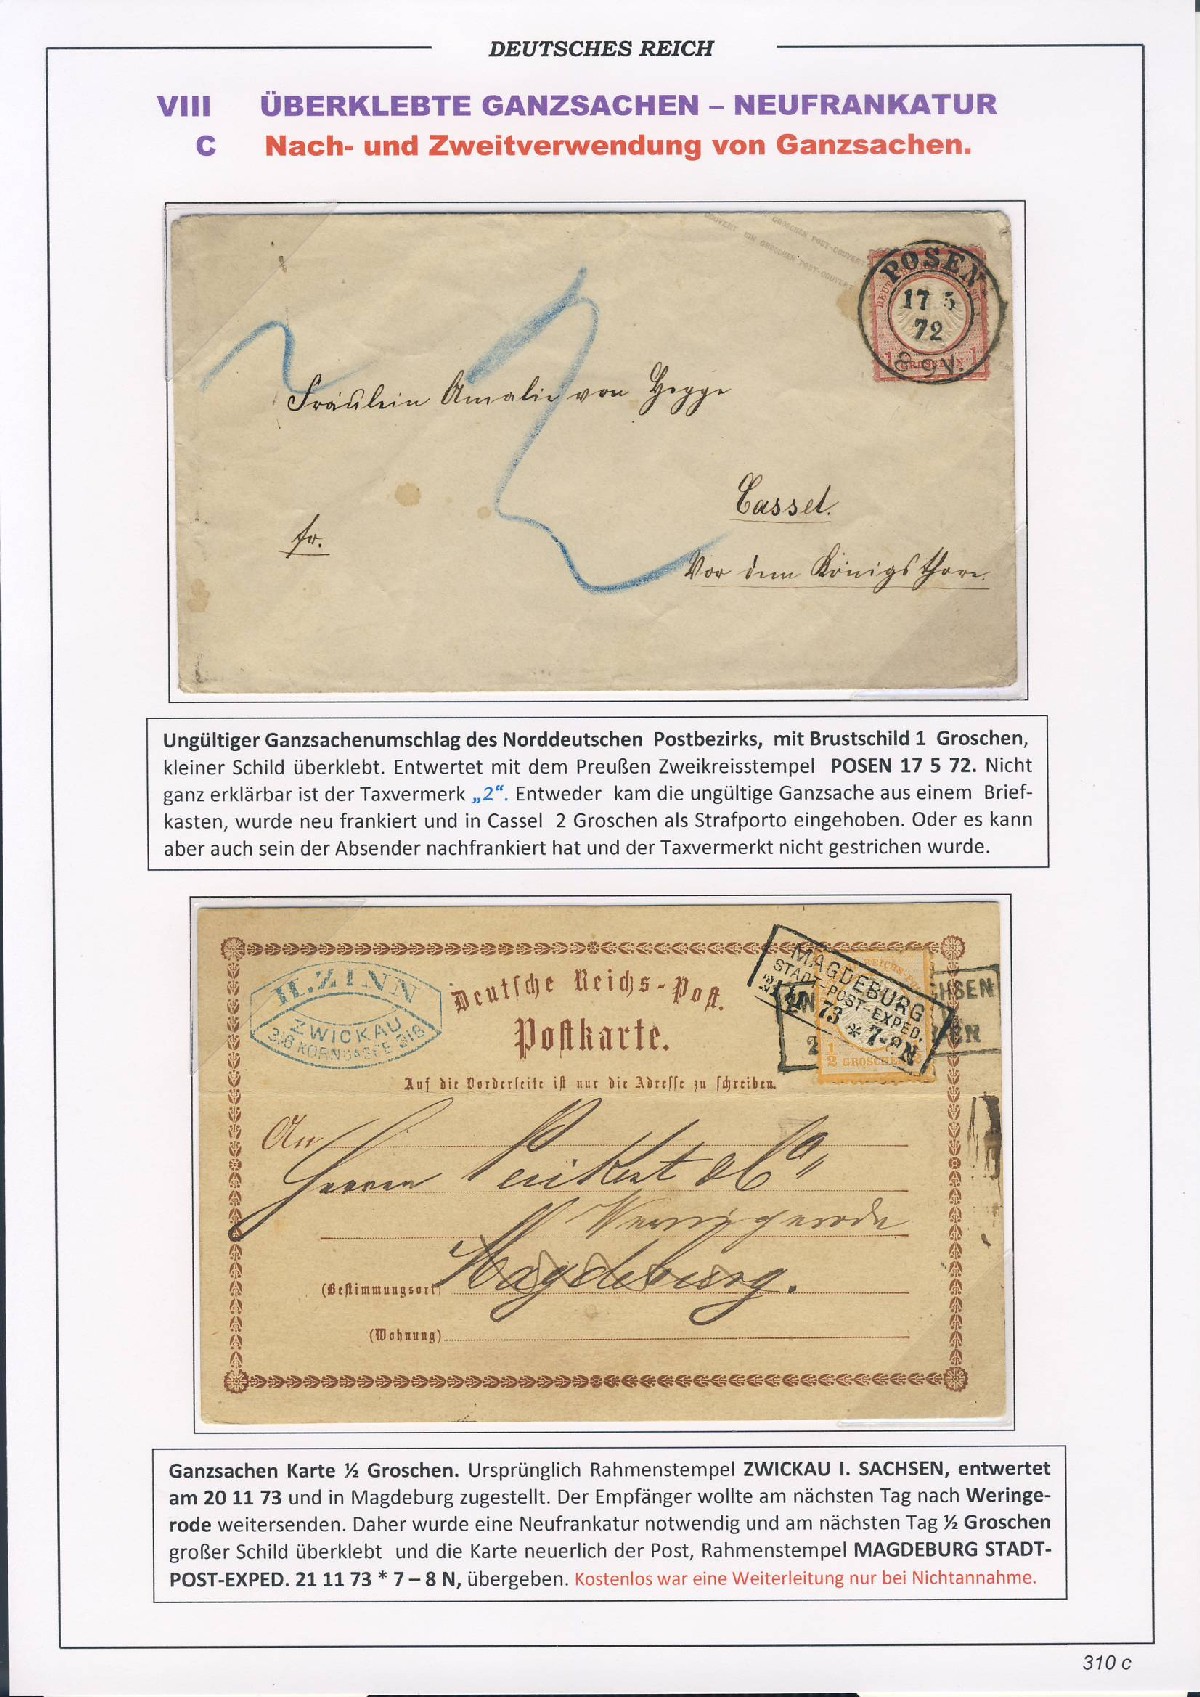 DEUTSCHES REICH
VIII ÜBERKLEBTE GANZSACHEN – NEUFRANKATUR
C Nach- und Zweitverwendung von Ganzsachen.
POSEN
17 5
72
8-9V.
1 GROSCHEN 1
Fräulein Amalie von Hegge
Cassel.
fr.
Vor dem Königsthore.
Ungültiger Ganzsachenumschlag des Norddeutschen Postbezirks, mit Brustschild 1 Groschen,
kleiner Schild überklebt. Entwertet mit dem Preußen Zweikreisstempel POSEN 17 5 72. Nicht
ganz erklärbar ist der Taxvermerk „2“. Entweder kam die ungültige Ganzsache aus einem Brief-
kasten, wurde neu frankiert und in Cassel 2 Groschen als Strafporto eingehoben. Oder es kann
aber auch sein der Absender nachfrankiert hat und der Taxvermerkt nicht gestrichen wurde.
H. ZINN
ZWICKAU
316 KORNGASSE 316
Deutsche Reichs-Post.
Postkarte.
MAGDEBURG
STADT-POST-EXPED.
21 11 73 * 7-8N
CHSEN
1/2 GROSCHEN
Auf die Vorderseite ist nur die Adresse zu schreiben.
An
Herrn Peukert & Co
Wernigerode
(Bestimmungsort) Magdeburg.
(Wohnung)
Ganzsachen Karte ½ Groschen. Ursprünglich Rahmenstempel ZWICKAU I. SACHSEN, entwertet
am 20 11 73 und in Magdeburg zugestellt. Der Empfänger wollte am nächsten Tag nach Weringe-
rode weitersenden. Daher wurde eine Neufrankatur notwendig und am nächsten Tag ½ Groschen
großer Schild überklebt und die Karte neuerlich der Post, Rahmenstempel MAGDEBURG STADT-
POST-EXPED. 21 11 73 * 7 – 8 N, übergeben. Kostenlos war eine Weiterleitung nur bei Nichtannahme.
310 c